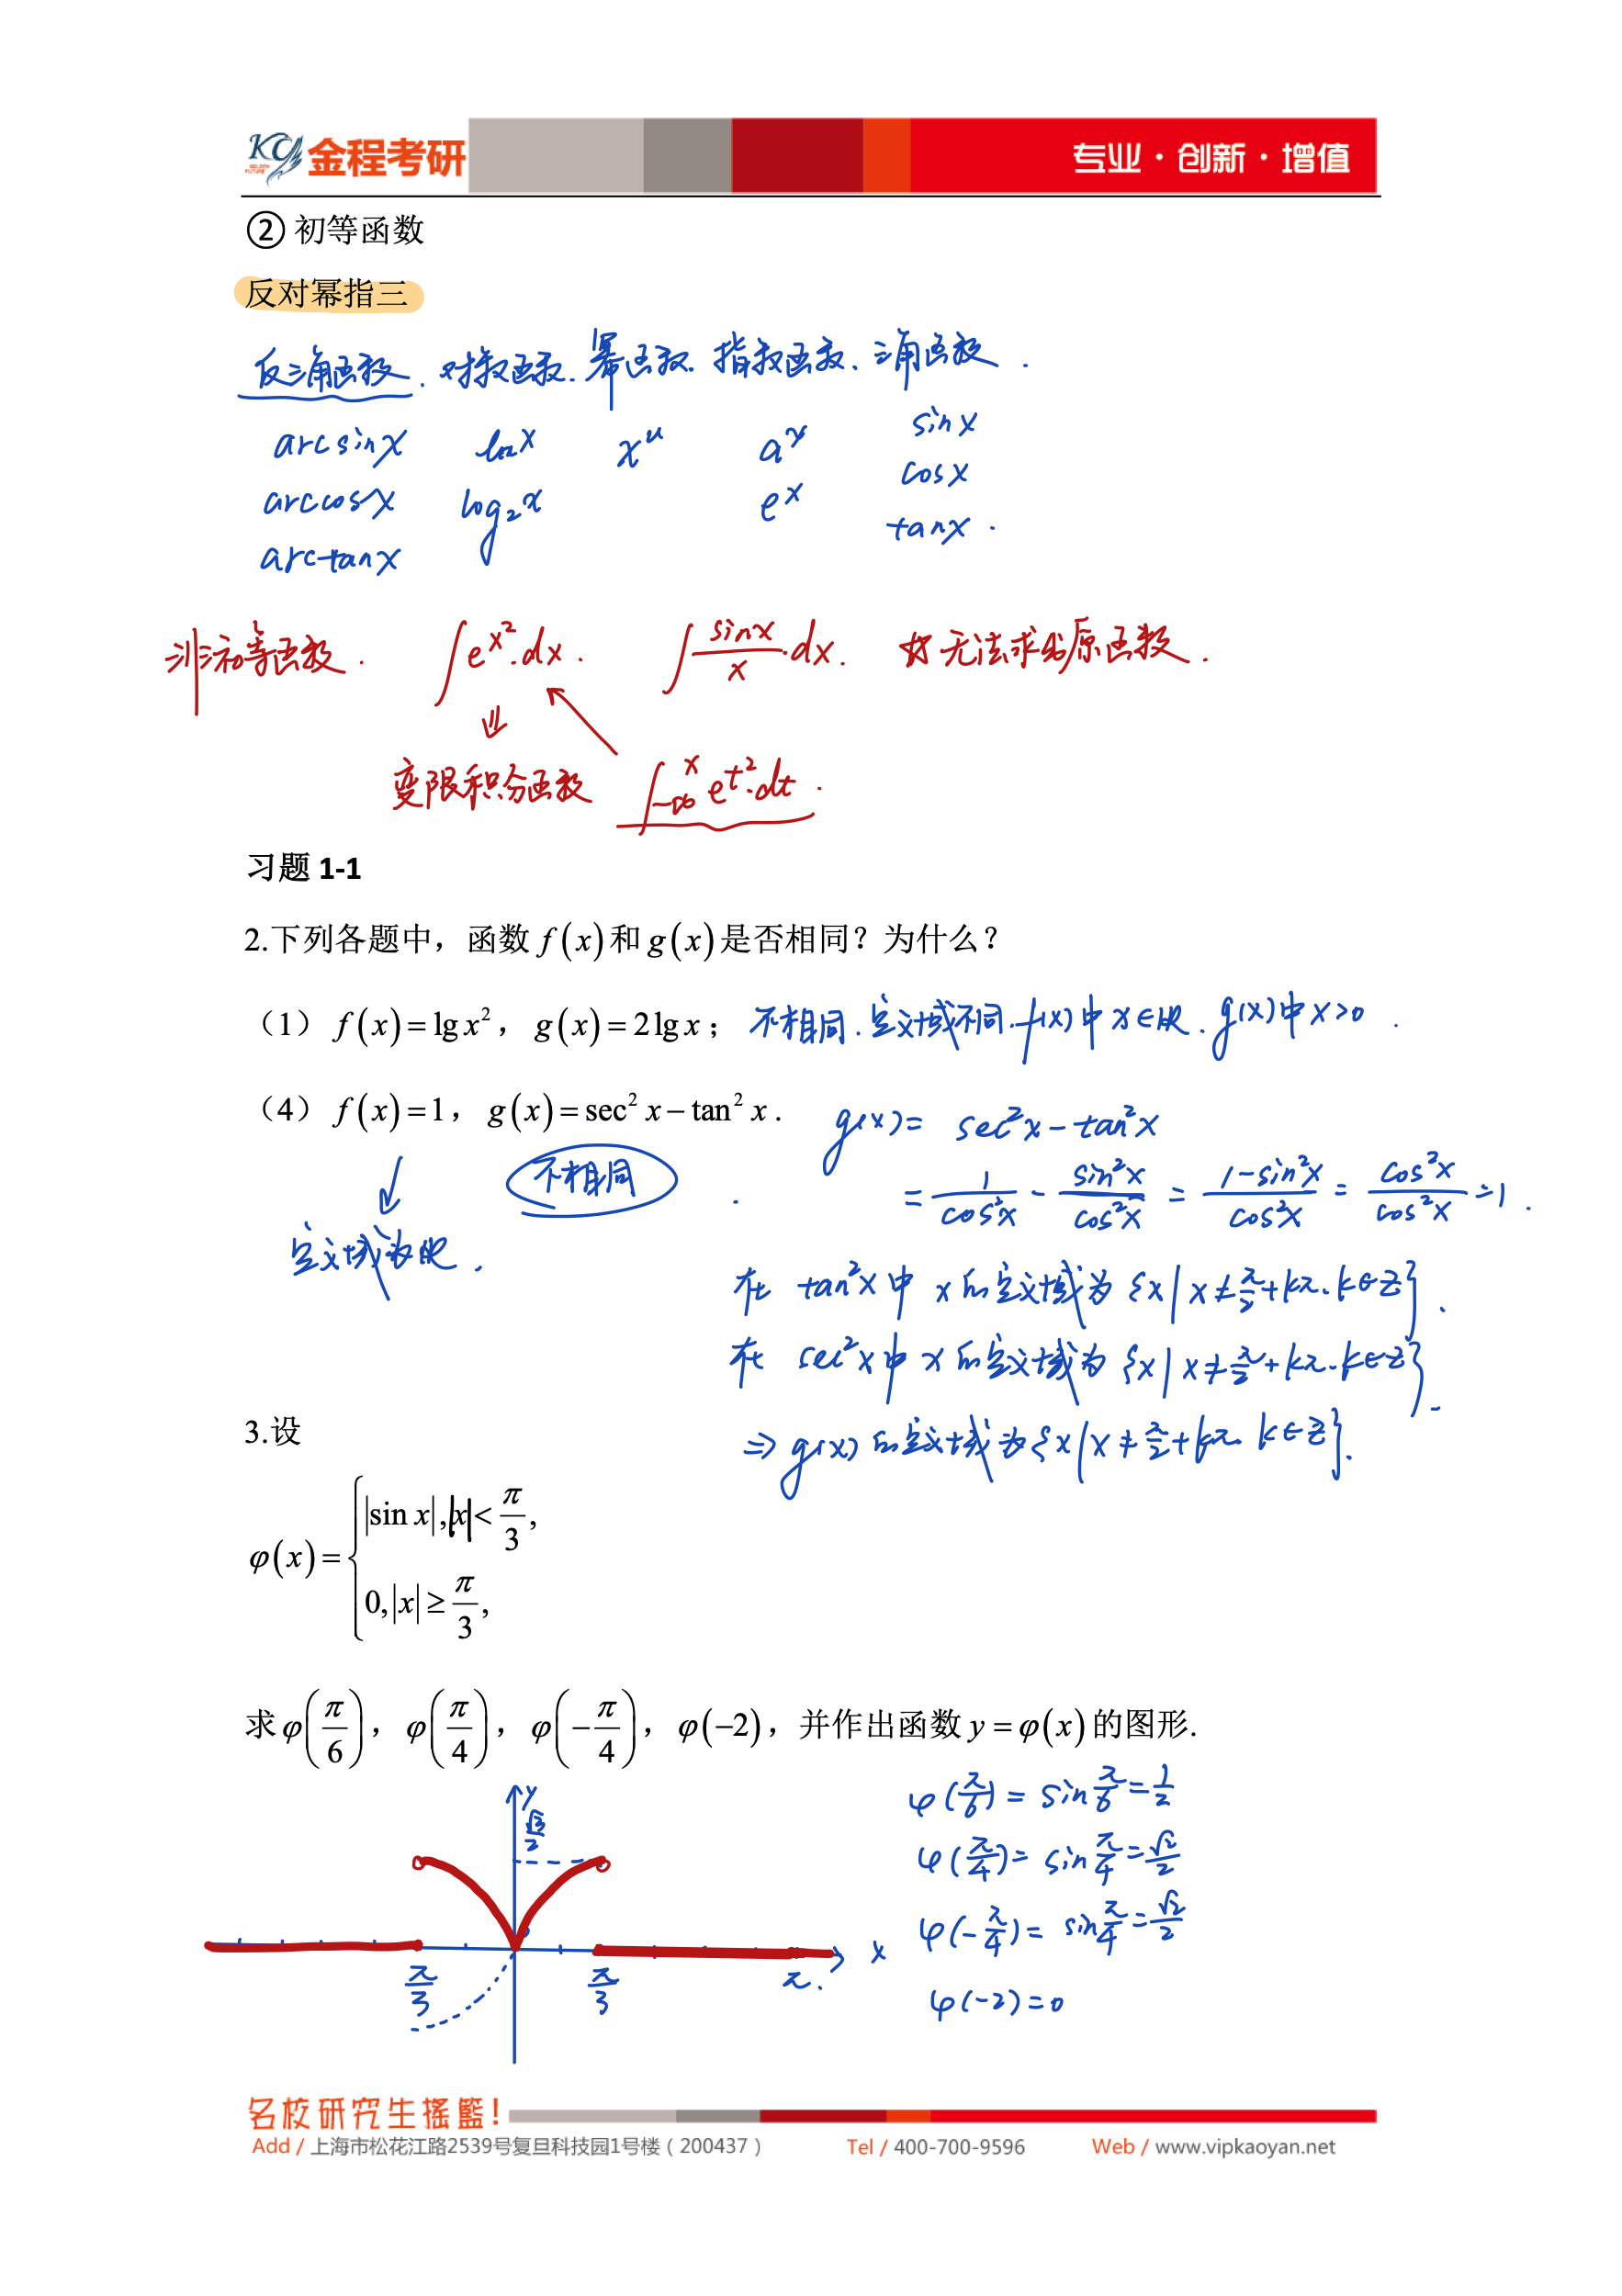 KC 金程考研 专业·创新·增值
GOLDEN FUTURE
② 初等函数
反对幂指三
反三角函数. 对数函数. 幂函数. 指数函数. 三角函数.
arcsinx lnx x^u a^x sinx
arccosx log₂x e^x cosx
arctanx tanx.
非初等函数. ∫e^{x²}·dx. ∫(sinx/x)·dx. ☆无法求出原函数.
⇓
变限积分函数 ∫_{-∞}^{x} e^{t²}·dt.
习题 1-1
2.下列各题中，函数 f(x) 和 g(x) 是否相同？为什么？
（1） f(x)=lg x²， g(x)=2lg x； 不相同. 定义域不同. f(x)中x∈R. g(x)中x>0.
（4） f(x)=1， g(x)=sec² x−tan² x. g(x)= sec²x−tan²x
不相同. = 1/cos²x − sin²x/cos²x = (1−sin²x)/cos²x = cos²x/cos²x =1.
定义域为R.
在 tan²x中 x的定义域为 {x|x≠π/2+kπ. k∈Z}.
在 sec²x中 x的定义域为 {x|x≠π/2+kπ. k∈Z}.
⇒ g(x)的定义域为{x|x≠π/2+kπ. k∈Z}.
3.设
φ(x)= { |sin x|,|x|< π/3,
0,|x| ≥ π/3,
求φ(π/6)， φ(π/4)， φ(−π/4)， φ(−2)，并作出函数 y=φ(x) 的图形.
y
√3/2
x
π/3 π/3 π.
φ(π/6) = sin π/6 = 1/2
φ(π/4) = sin π/4 = √2/2
φ(−π/4) = sin π/4 = √2/2
φ(−2)=0
名校研究生摇篮!
Add / 上海市松花江路2539号复旦科技园1号楼（200437） Tel / 400-700-9596 Web / www.vipkaoyan.net